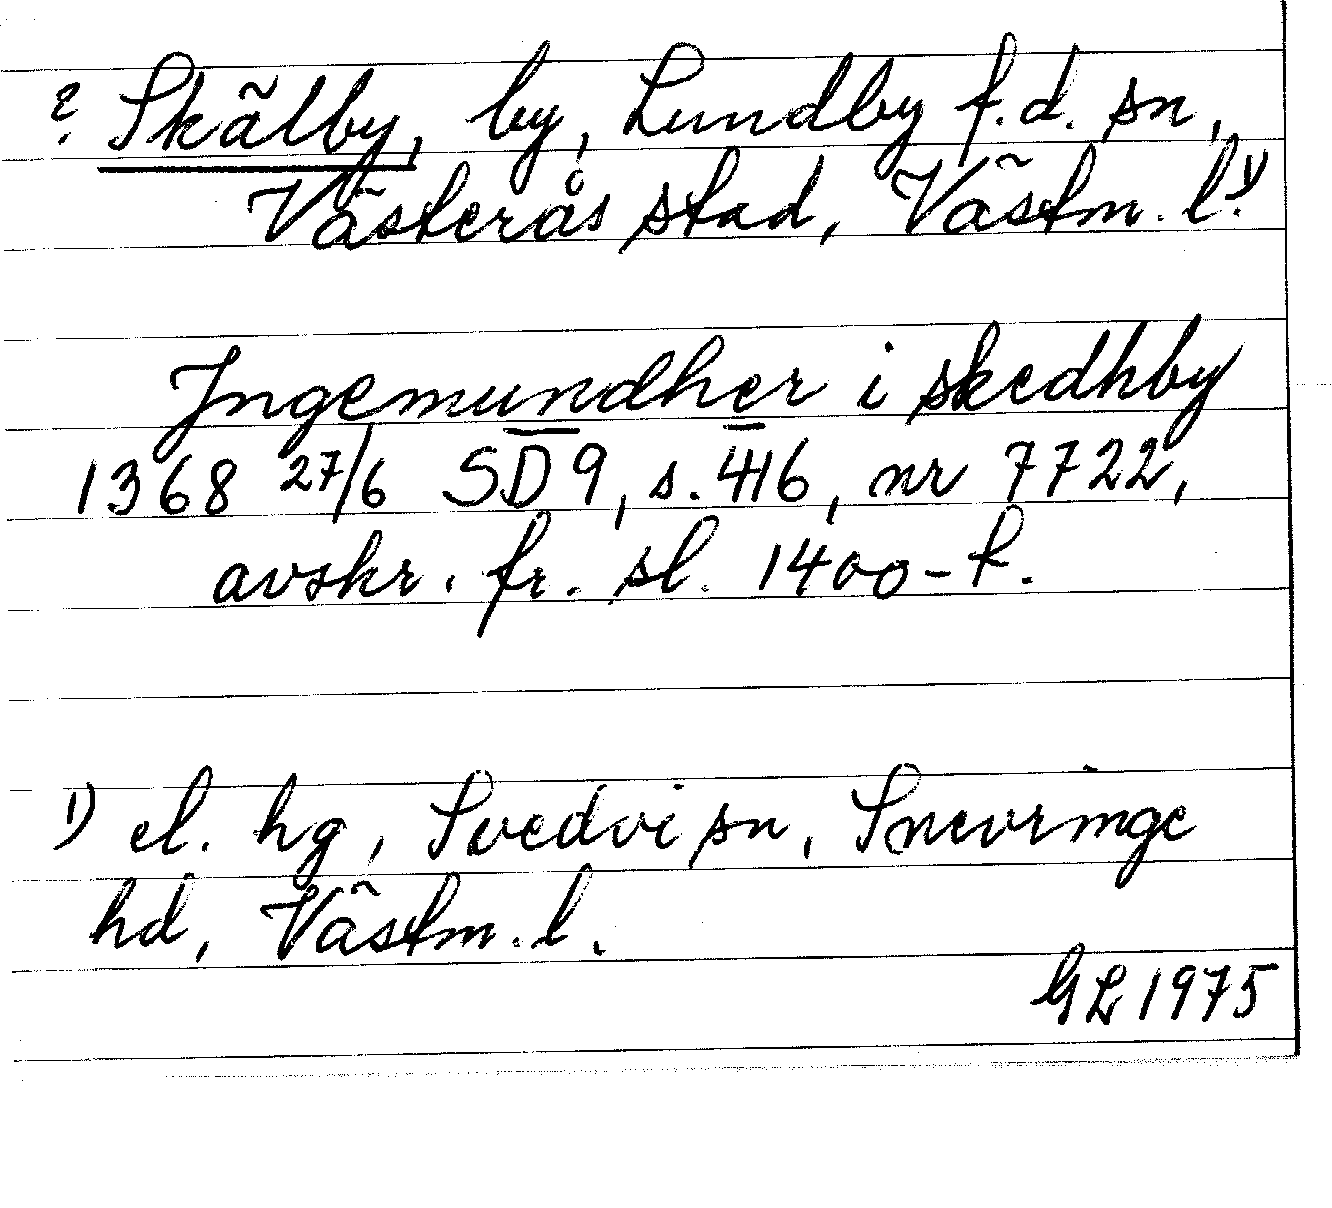 ? Skälby, by, Lundby f.d. sn,
Västerås stad, Västm. l.¹⁾
Ingemundher i skedhby
1368 27/6 SD 9, s. 416, nr 7722,
avskr. fr. sl. 1400-t.
1) el. hg, Svedvi sn, Snevringe
hd, Västm. l.
GL 1975